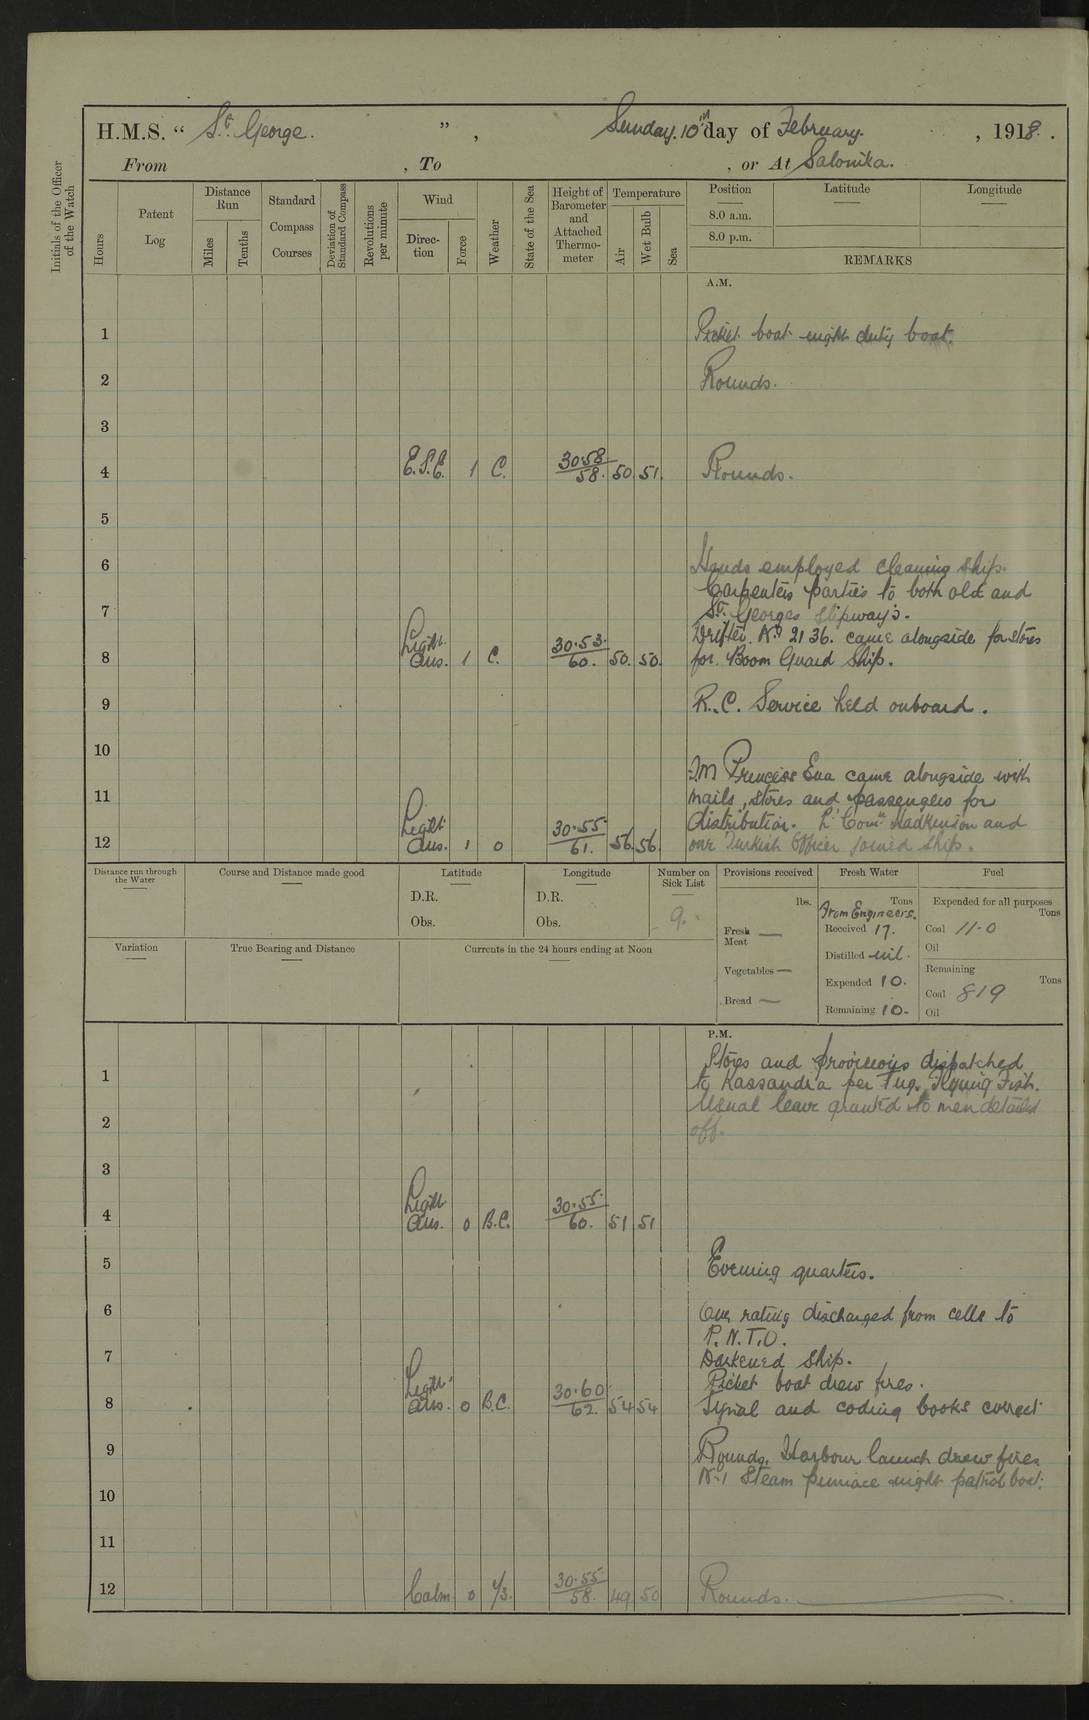 H.M.S. “ St. George. ” , Sunday. 10th day of February. , 1918.
From , To , or At Salonika.
Initials of the Officer of the Watch
Hours
Patent Log
Distance Run
Miles
Tenths
Standard Compass Courses
Deviation of Standard Compass
Revolutions per minute
Wind
Direction
Force
Weather
State of the Sea
Height of Barometer and Attached Thermometer
Temperature
Air
Wet Bulb
Sea
Position
8.0 a.m.
8.0 p.m.
Latitude
Longitude
REMARKS
A.M.
1 Picket boat night duty boat.
2 Rounds.
3
4 E.S.E. 1 C. 30.58/58. 50. 51. Rounds.
5
6 Hands employed cleaning ship.
Carpenters parties to both old and
7 St. Georges slipways.
Drifter No 2136. came alongside for stores
8 Light Airs. 1 C. 30.53./60. 50. 50. for Boom Guard Ship.
9 R.C. Service held onboard.
10
Princess Ena came alongside with
11 mails, stores and passengers for
distribution. Lt Comr and
12 Light Airs. 1 0 30.55/61. 56. 56. one Turkish Officer joined ship.
Distance run through the Water
Course and Distance made good
Latitude
D.R.
Obs.
Longitude
D.R.
Obs.
Number on Sick List
9.
Provisions received
lbs.
Fresh Meat —
Vegetables —
Bread —
Fresh Water
Tons
From Engineers.
Received 17.
Distilled nil.
Expended 10.
Remaining 10.
Fuel
Expended for all purposes
Tons
Coal 11.0
Oil
Remaining
Tons
Coal 819
Oil
Variation
True Bearing and Distance
Currents in the 24 hours ending at Noon
P.M.
Stores and provisions dispatched
1 to Kassandra per Tug. Flying Fish.
Usual leave granted to men detailed
2 off.
3
4 Light Airs. 0 B.C. 30.55/60. 51 51
5 Evening quarters.
6 One rating discharged from cells to
P.N.T.O.
7 Darkened ship.
Picket boat drew fires.
8 Light Airs. 0 B.C. 30.60/62. 54 54 Signal and coding books correct
9 Rounds. Harbour launch drew fires
No 1 Steam pinnace night patrol boat.
10
11
12 Calm 0 30.55/58. 49 50 Rounds.